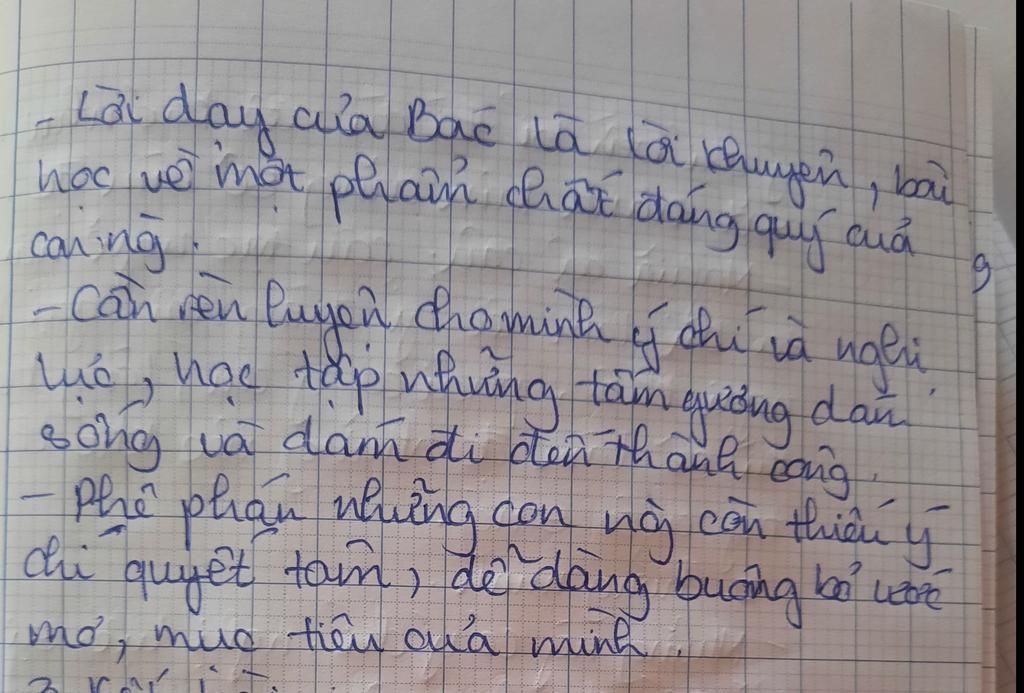 - Lời dạy của Bác là lời khuyên, bài
học về một phẩm chất đáng quý của
con ng̀
- Cần rèn luyện cho mình ý chí và nghị
lực, học tập những tấm gương dám
sống và dám đi đến thành công.
- Phê phán những con ng̀ còn thiếu ý
chí quyết tâm, dễ dàng buông bỏ ước
mơ, mục tiêu của mình.